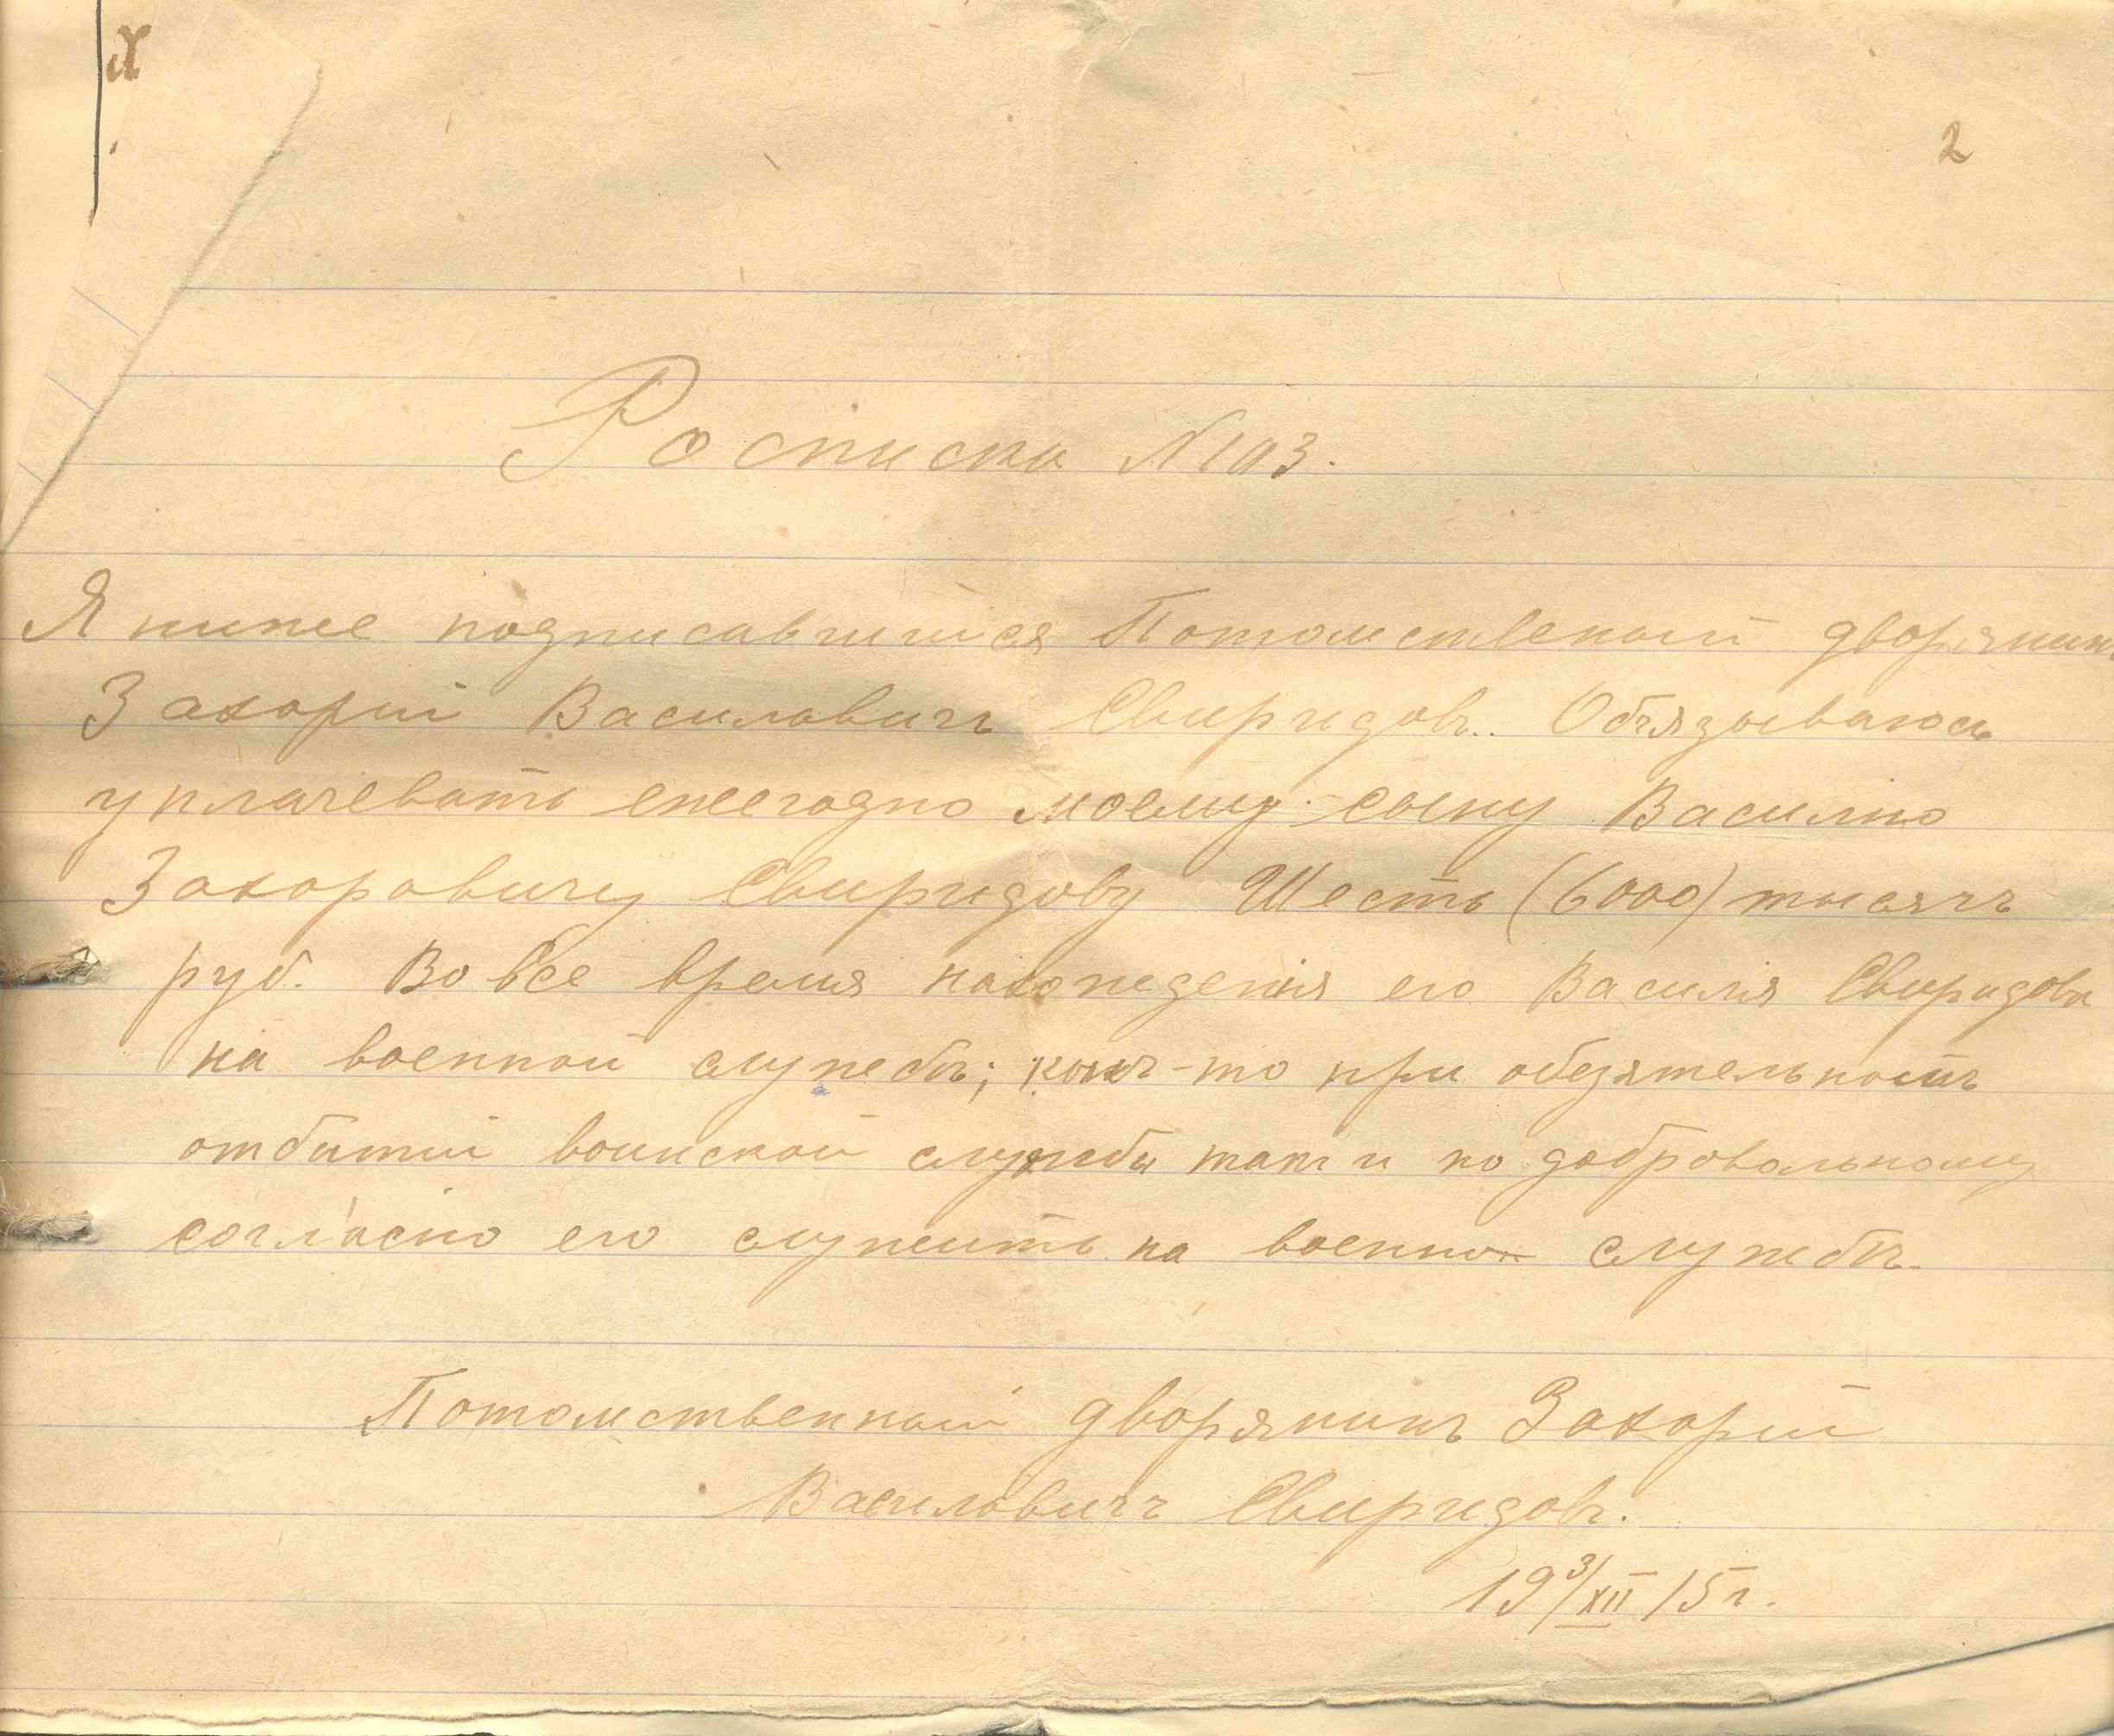 2
Росписка №103.
Я ниже подписавшийся Потомственый дворянинъ
Захорий Василовичъ Свиридовъ.. Обязываюсь
уплачевать ежегодно моему сыну Василию
Захоровичу Свиридову Шесть (6000) тысячъ
руб. Во все время нахождения его Василия Свиридова
на военной службѣ; какъ-то при обезятельности
отбытий воинской службы такъ и по добровольному
согласию его служить на военной службѣ.
Потомственный дворянинъ Захорий
Василовичъ Свиридовъ.
19 3/XII 15 г.